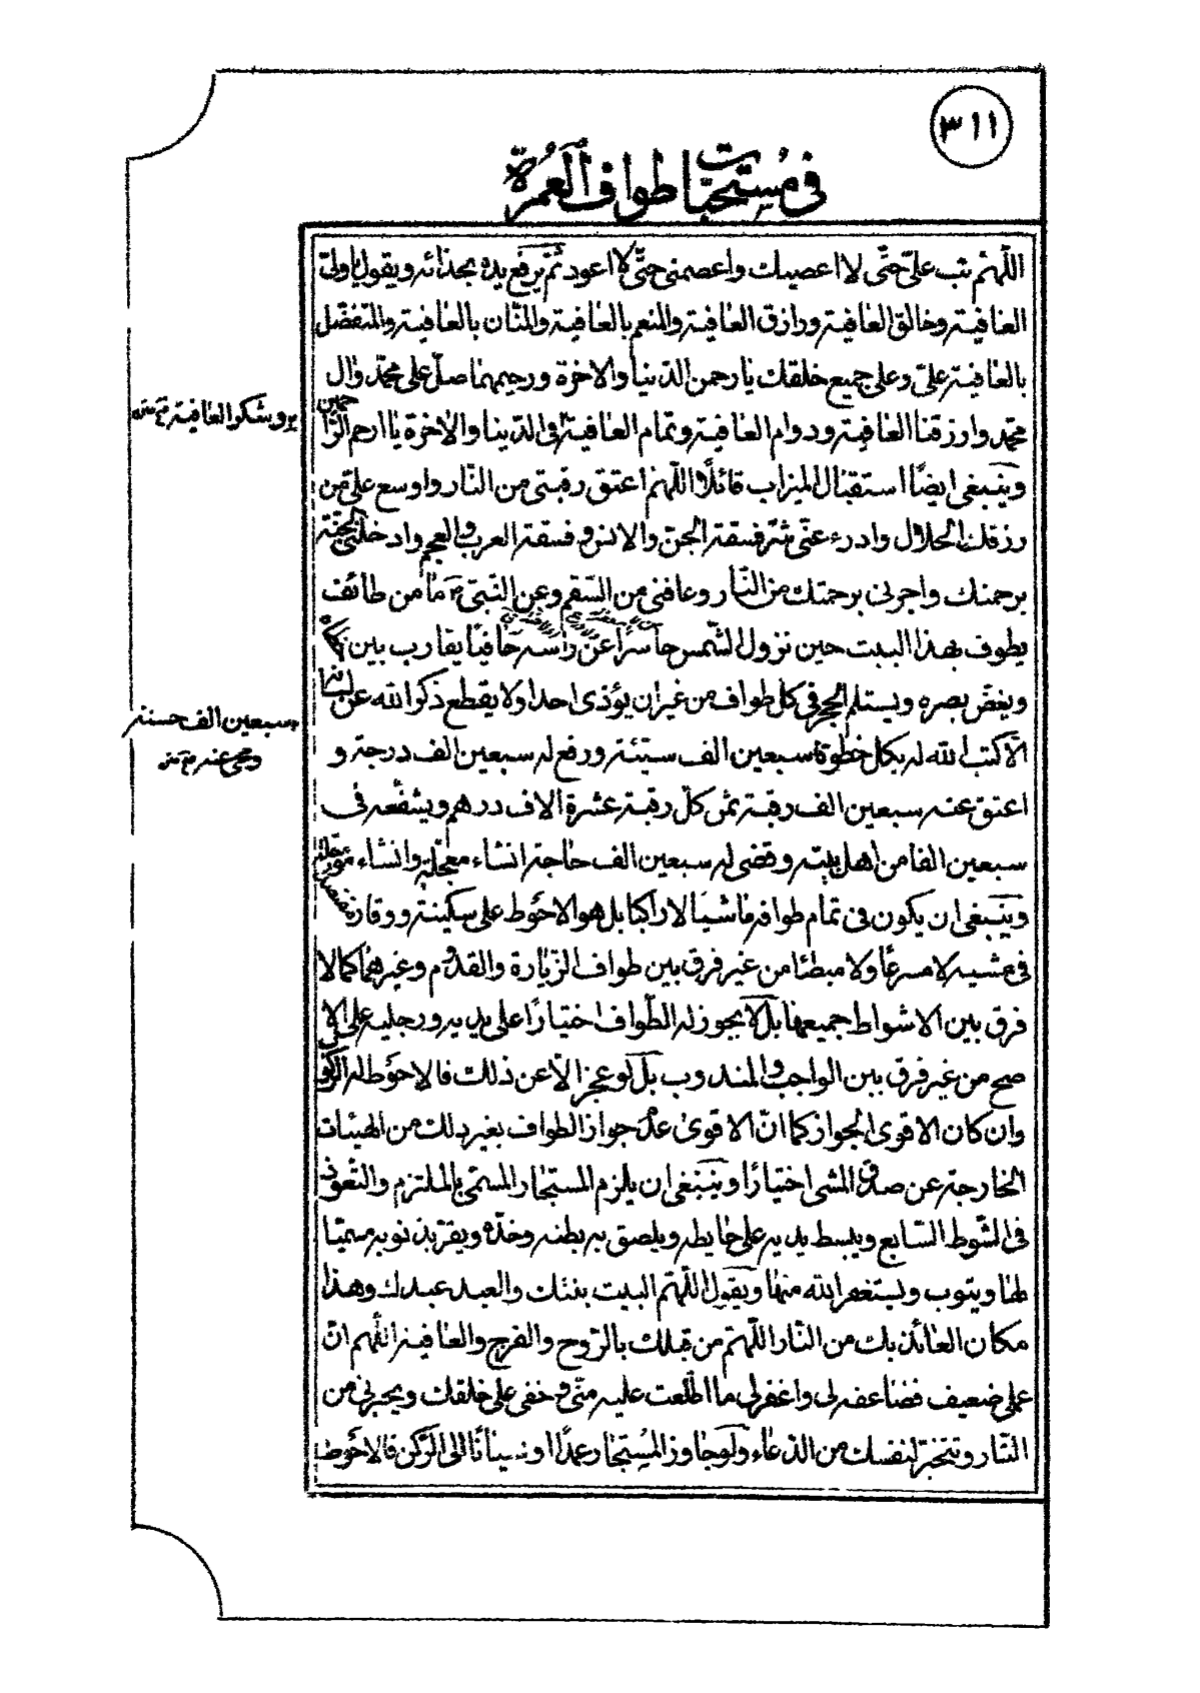 ٣١١
في مُستحبّات طواف العُمرة
اللّهمّ تب علىّ حتّى لا اعصيك واعصمنى حتّى لا اعود ثمّ يرفع يده بحذائه ويقول يا ولىّ
العافية وخالق العافية ورازق العافية والمنعم بالعافية والمنّان بالعافية والمتفضّل
بالعافية علىّ وعلى جميع خلقك يا رحمن الدّنيا والاخرة ورحيمهما صلّ على محمّد وال
محمّد وارزقنا العافية ودوام العافية وتمام العافية فى الدّنيا والاخرة يا ارحم الرّاحمين
وشكر العافية
وينبغى ايضًا استقبال الميزاب قائلًا اللّهمّ اعتق رقبتى من النّار واوسع علىّ من
رزقك الحلال وادرء عنّى شرّ فسقة الجنّ والانس وفسقة العرب والعجم وادخلنى الجنّة
برحمتك واجرنى برحمتك من النّار وعافنى من السّقم وعن النّبىّ ص ما من طائف
يطوف بهذا البيت حين نزول الشّمس حاسرًا عن راسه حافيًا يقارب بين
ويغضّ بصره ويستلم الحجر فى كلّ طواف من غير ان يؤذى احدا ولا يقطع ذكر الله عن لسانه
الّا كتب الله له بكلّ خطوة سبعين الف سيّئة ورفع له سبعين الف درجة و
سبعين الف حسنة
ومحى عنه
اعتق عنه سبعين الف رقبة ثمن كلّ رقبة عشرة الاف درهم ويشفّعه فى
سبعين الفا من اهل بيته وقضى له سبعين الف حاجة انشاء معجّلة وانشاء مؤجّلة
وينبغى ان يكون فى تمام طوافه ماشيًا لا راكبا بل هو الاحوط على سكينة ووقار
فى مشيه لا مسرعًا ولا مبطئا من غير فرق بين طواف الزّيارة والقدوم وغيرهما كما لا
فرق بين الاشواط جميعها بل لا يجوز له الطّواف اختيارًا على يديه ورجليه على الا
صح من غير فرق بين الواجب والمندوب بل لو عجز الّا عن ذلك فالاحوط له الركوب
وان كان الاقوى الجواز كما انّ الاقوىٰ عدم جواز الطواف بغير ذلك من الهيئات
الخارجة عن صدق المشى اختيارًا وينبغى ان يلزم المستجار المسمّى بالملتزم والتّعوّذ
فى الشّوط السّابع ويبسط يديه على حايطه ويلصق به بطنه وخدّه ويقرّ بذنوبه مسمّيا
لها ويتوب ويستغفر الله منها ويقول اللّهمّ البيت بيتك والعبد عبدك وهذا
مكان العائذ بك من النّار اللّهمّ من قبلك بالرّوح والفرج والعافية اللّهم انّ
عملى ضعيف فضاعفه لى واغفر لى ما اطّلعت عليه منّى وخفى على خلقك ويجيرنى من
النّار وتتخيّر لنفسك من الدّعاء ولو جاوز المستجار عمدًا او نسيانًا الى الرّكن فالاحوط